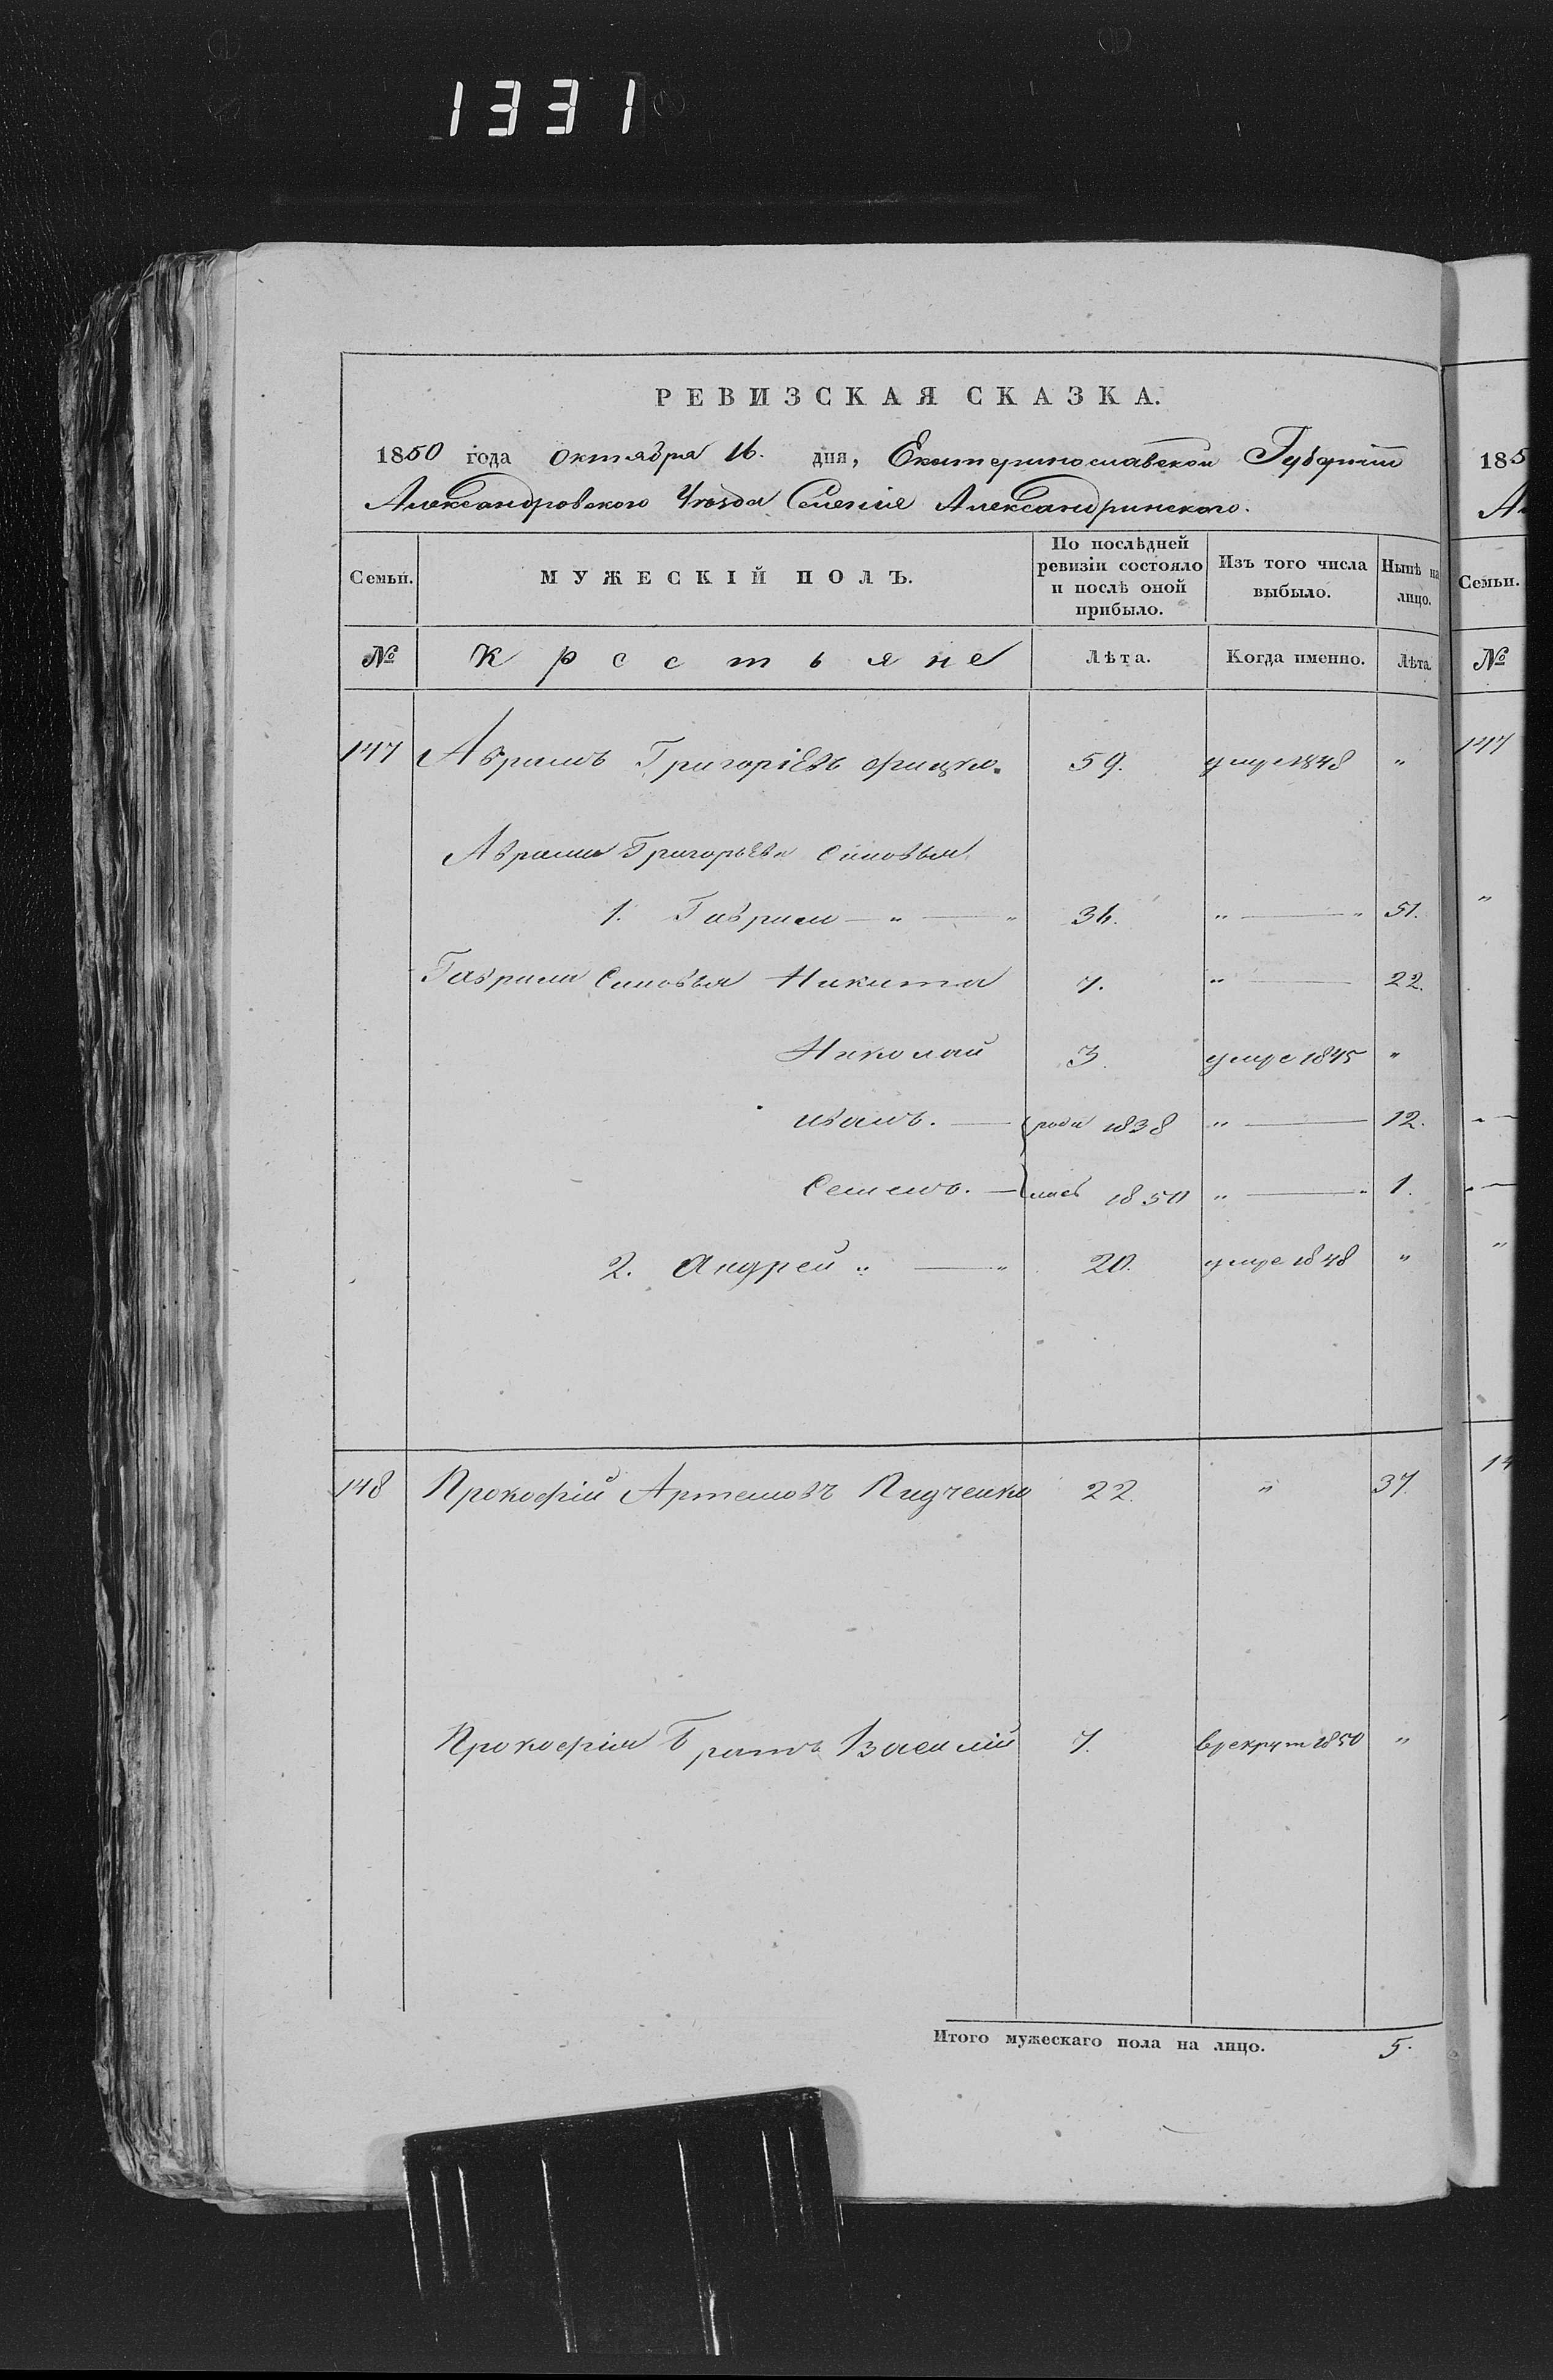 1331
РЕВИЗСКАЯ СКАЗКА.
1850 года октября 16. дня, Екатеринославской Губерніи
Александровского Уезда Селенія Александринского.
Семьи. МУЖЕСКІЙ ПОЛЪ. По послѣдней ревизіи состояло и послѣ оной прибыло. Изъ того числа выбыло. Нынѣ на лицо.
№ Крестьяне Лѣта. Когда именно. Лѣта
147 Аврамъ Григоріевъ 59. умре 1848 "
Аврама Григорьева Синовья
1. Гаврило — " — " 36. " — " 51.
Гаврила Синовья Никита 7. " — 22.
Николай 3. умре 1845 "
иванъ. — роди 1838 " — 12.
Семенъ. — лись 1850 " — " 1.
2. Андрей " — " 20. умре 1848 "
148 Прокофій Артемовъ Пидченко 22. " 37.
Прокофія Братъ Василій 7. врекрут 1850 "
Итого мужескаго пола на лицо. 5.
185
А
Семьи.
№
147
14